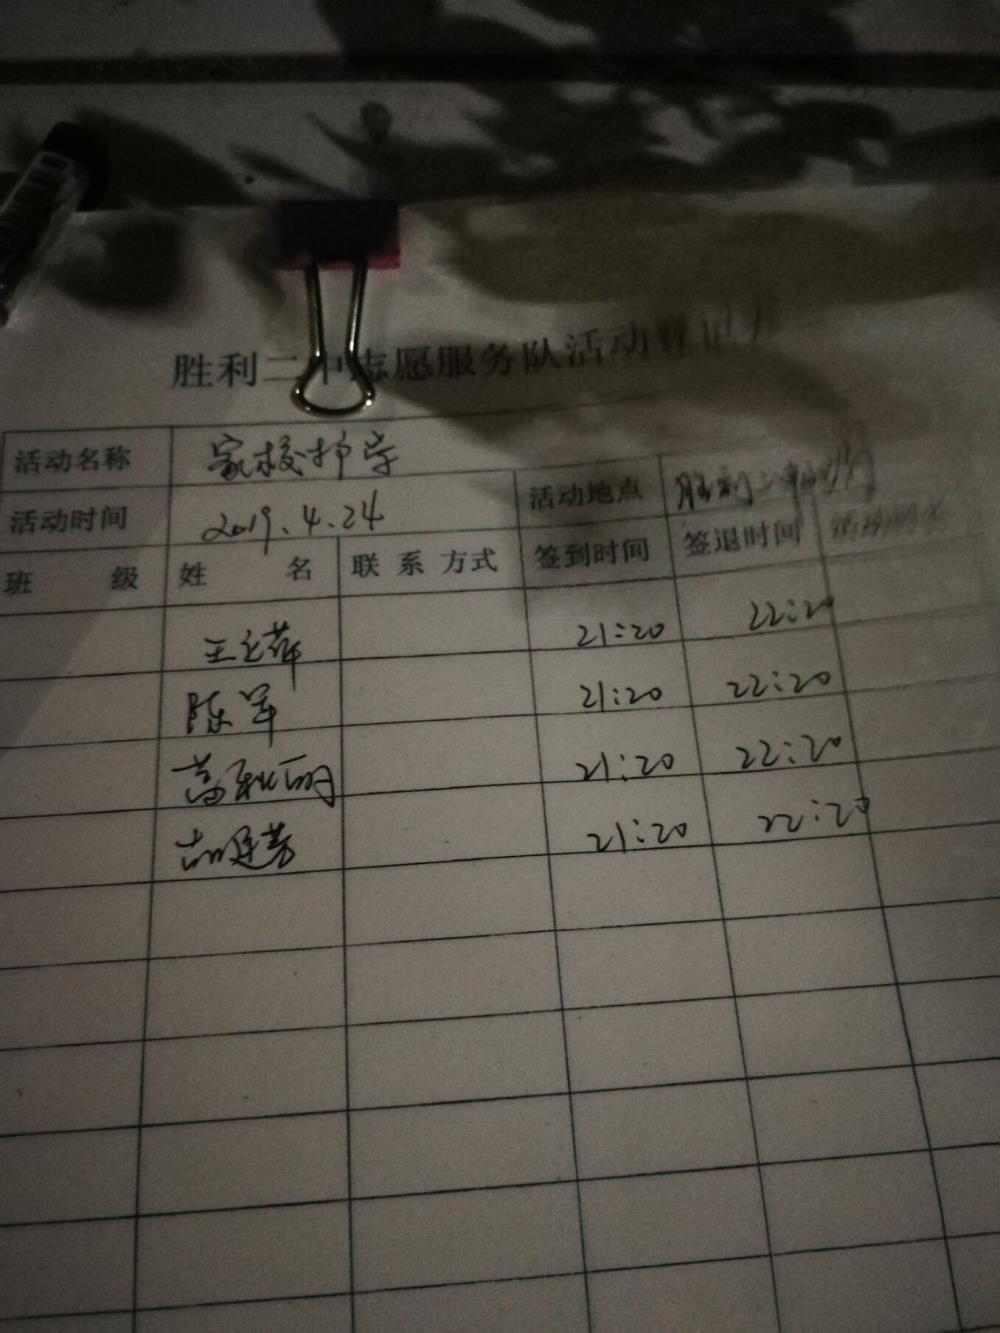 胜利二中志愿服务队活动登记
活动名称 家校护学
活动时间 2019.4.24 活动地点 胜利二
班 级 姓 名 联 系 方式 签到时间 签退时间
21:20 22:20
陈军 21:20 22:20
21:20 22:20
21:20 22:20